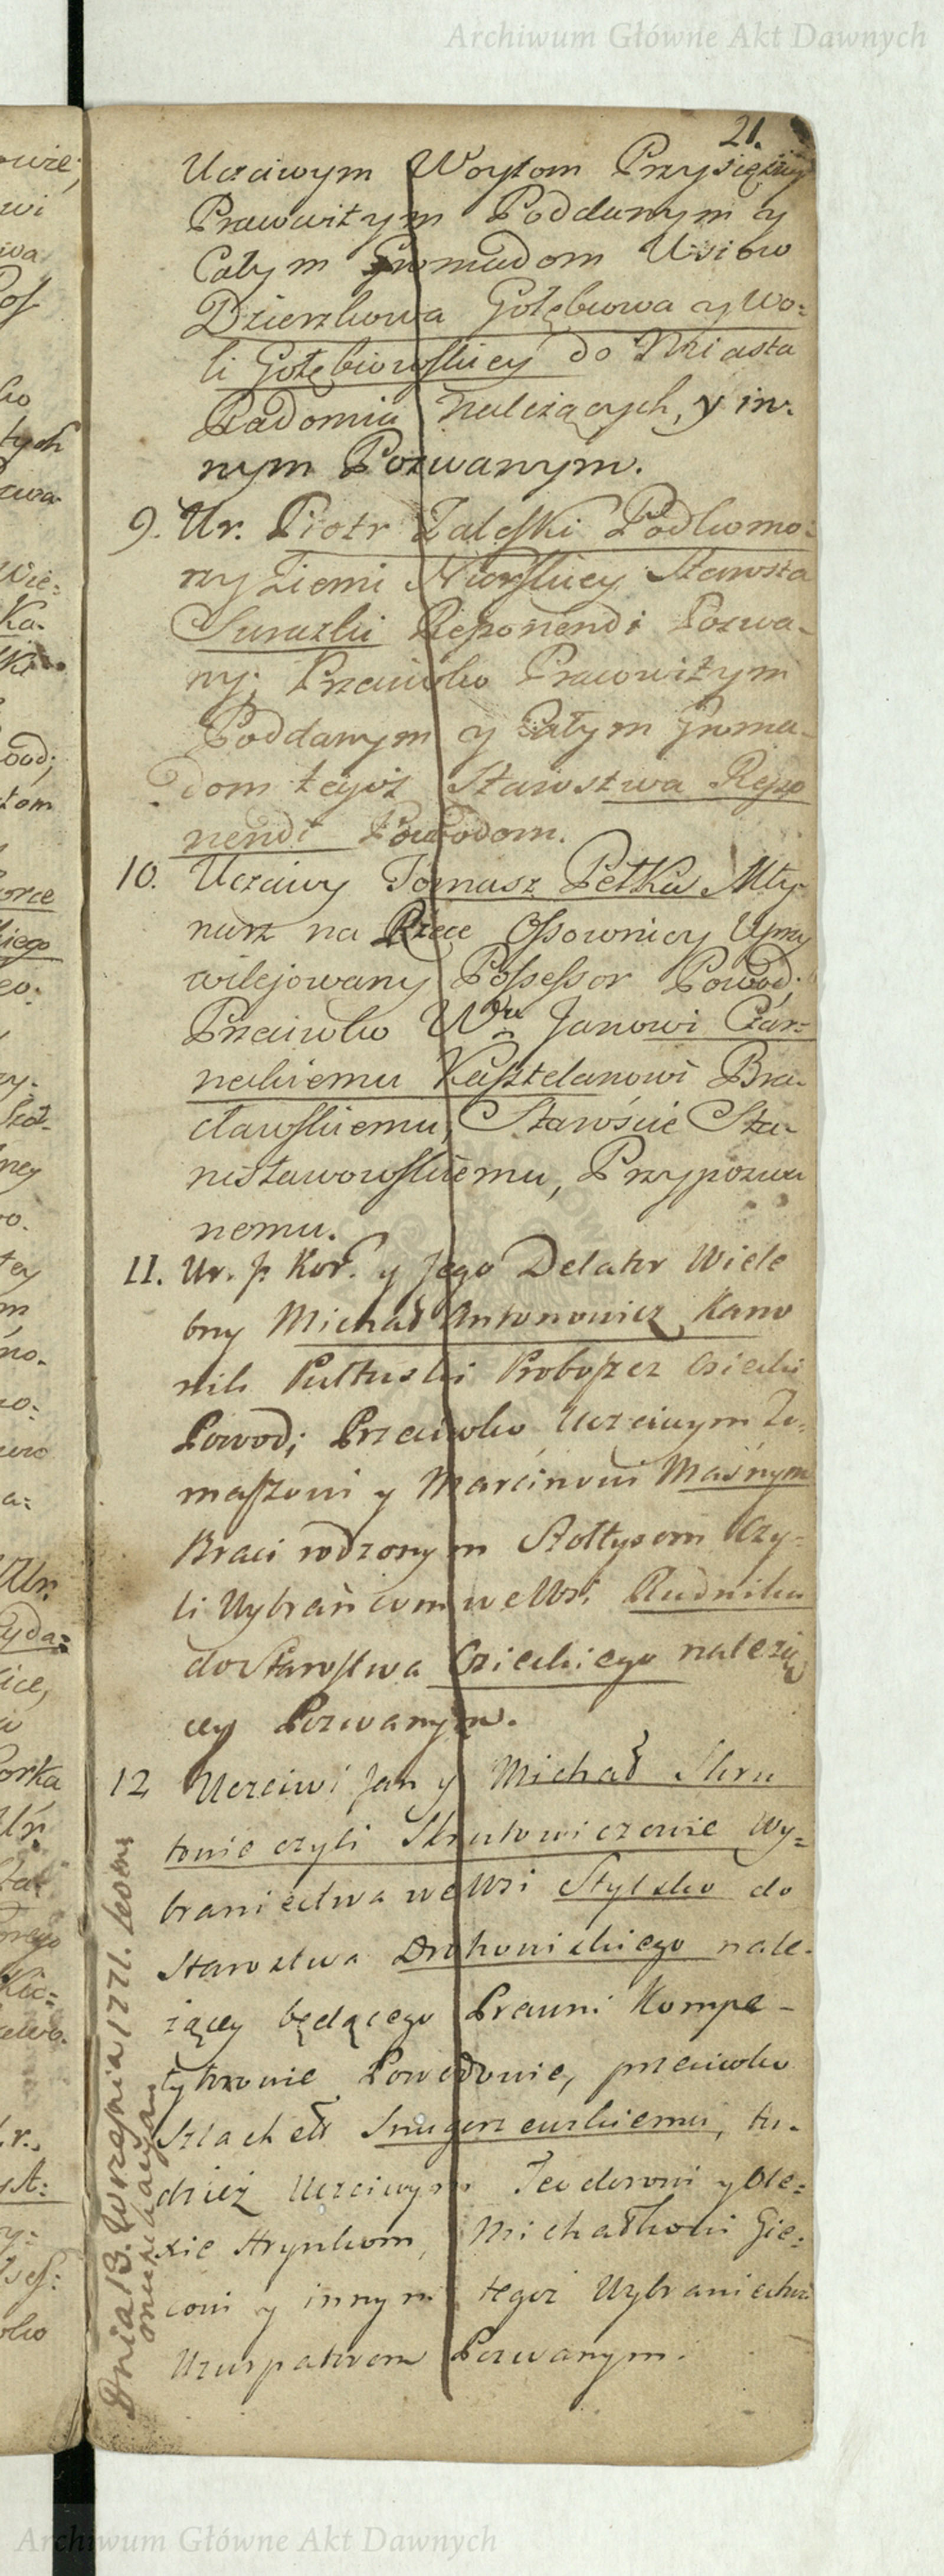 Archiwum Główne Akt Dawnych
21.
Uczciwym Woytom Przysięzny
Prawowitym Poddanym y
Całym Gromadom Wsiow
Dzierzkowa Gołębiowa y Wo:
li Gołębiowskiey do Miasta
Radomia Należących, y in:
nym Pozwanym.
9. Ur. Piotr Zaleski Podkomo:
rzy Ziemi Nurskiey Starosta
Surazki Reponendi Pozwa-
ny; Przeciwko Prawowitym
Poddanym y Całym Groma-
dom tegoż Starostwa Repo
nendi Powodom.
10. Uczciwy Tomasz Petka Mły-
narz na Rzece Ossownicy Uprzy
wilejowany Possessor Powod;
Przeciwko Wu Janowi Czar-
neckiemu Kasztelanowi Bra-
cławskiemu, Staroście Sta-
nisławowskiemu, Przypozwa
nemu.
11. Ur. J: Kor. y Jego Delator Wiele
bny Michał Antonowicz Kano
nik Pułtuski Proboszcz Osiecki
Powod; Przeciwko Uczciwym To:
maszowi y Marcinowi Maśnym
Braci rodzonym Sołtysom Czy-
li Wybrańcom we Wsi Rudniku
do Starostwa Osieckiego należą
cey Pozwanym.
12 Uczciwi Jan y Michał Skru
tonie czyli Skrutowiczowie Wy-
braniectwa we Wsi Stylsko do
Starostwa Drohowizkiego nale-
żącey będącego Prawni Kompe-
tytorowie Powodowie, przeciwko
Szlachett Snugorzewskiemu, tu-
dzież Uczciwym Teodorowi y Ole:
xie Hrynkom, Michałkowi Gie:
cowi y innym tegoż Wybraniectwa
Uzurpatorom Pozwanym.
Dnia 13. Września 1771.
Archiwum Główne Akt Dawnych